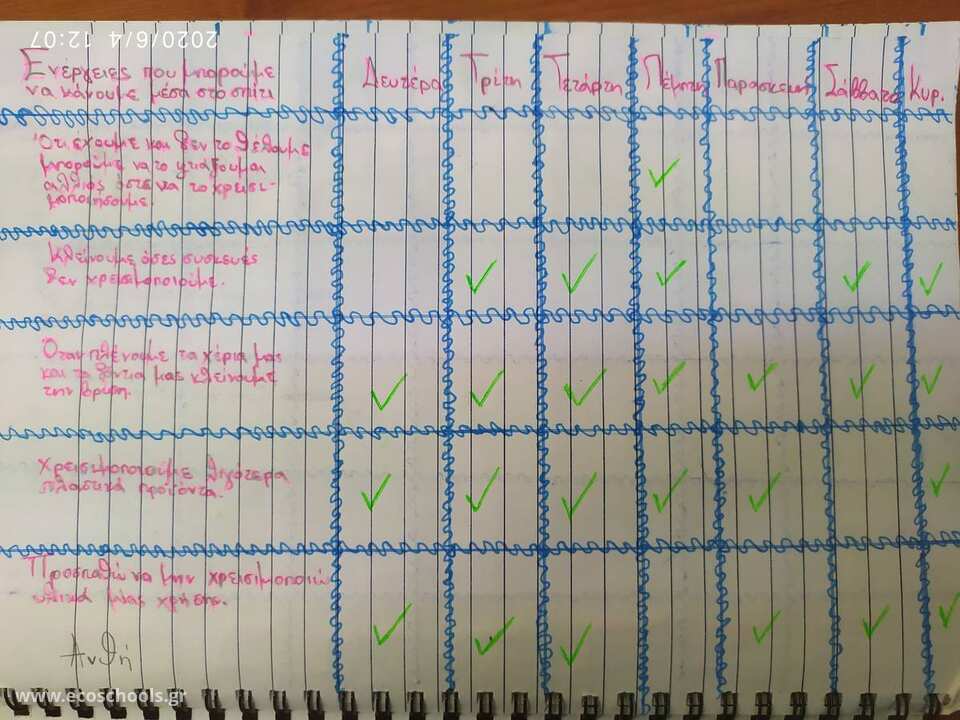 2020/6/4 12:07
Ενέργειες που μπορούμε
να κάνουμε μέσα στο σπίτι
Δευτέρα Τρίτη Τετάρτη Πέμπτη Παρασκευή Σάββατο Κυρ.
Ότι έχουμε και δεν το θέλουμε
μπορούμε να το φτιάξουμαι
αλλιός όστε να το χρεισι-
μοποιήσουμε.
Κλείνουμε όσες συσκευές
δεν χρεισιμοποιούμε.
Όταν πλένουμε τα χέρια μας
και τα δόντια μας κλείνουμε
την βρύση.
Χρεισιμοποιούμε λιγότερα
πλαστικά προϊόντα.
Προσπαθώ να μην χρεισιμοποιώ
υλικά μίας χρήσης.
Ανθή
www.ecoschools.gr